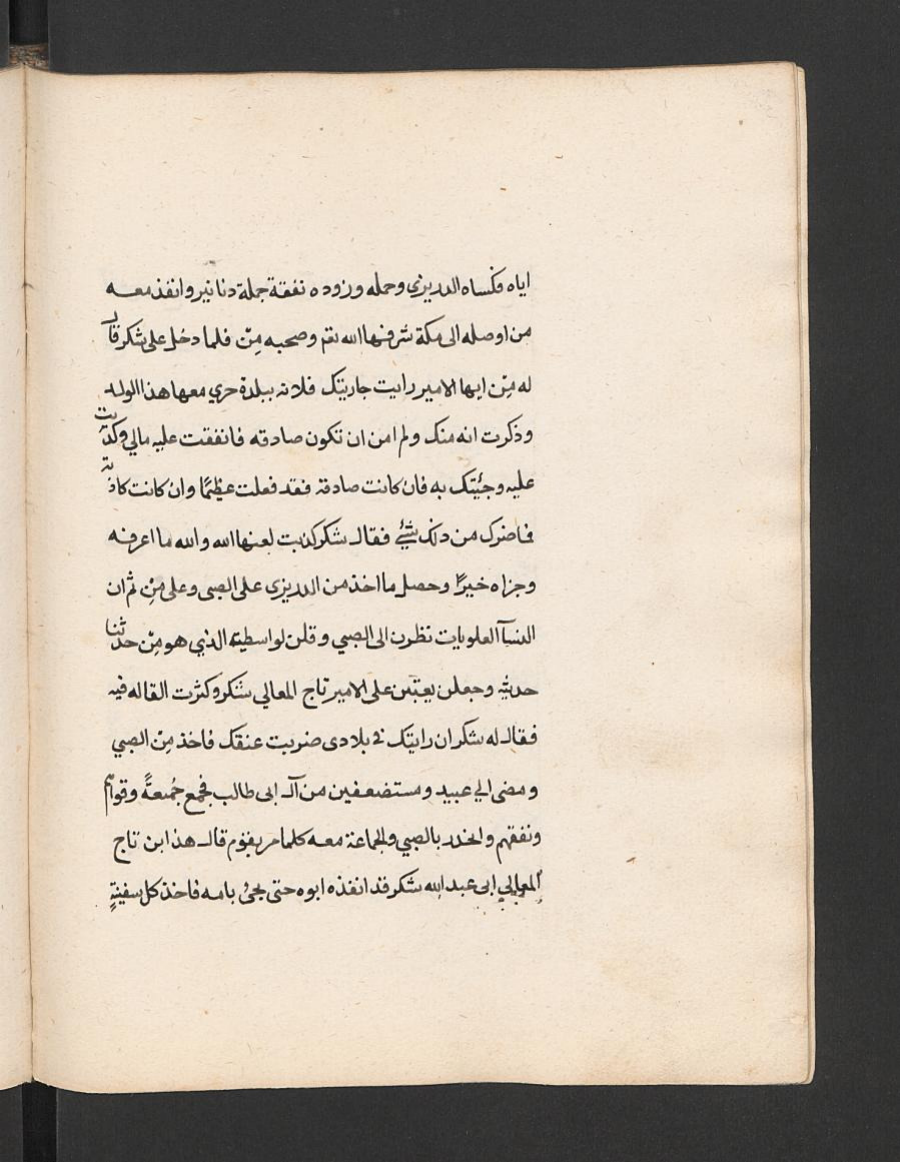 اياه فكساه الدريزى وحمله وزوده نفقة جملة دنانير وانفذ معه
من اوصله الى مكة شرفها الله تعم وصحبه مِنّ فلما دخل على شكر قال
له مِنّ ايها الامير رايت جاريتك فلانه ببلدة حري معها هذا الولد
وذكرت انه منك ولم امن ان تكون صادقه فانفقت عليه مالي وكدّيت
عليه وجئتك به فان كانت صادقه فقد فعلت عظيمًا وان كانت كاذبة
فاضرك من ذلك شيء فقال شكر كذبت لعنها الله والله ما اعرفه
وجزاه خيرًا وحصل ما اخذ من الدريزى على الصبى وعلى مِنّ ثم ان
النسآ العلويات نظرن الى الصبي وقلن لواسطيته الذي هو مِنّ حدثنا
حدثيه وجعلن يعتبن على الامير تاج المعالي شكر وكثرت القاله فيه
فقال له شكر ان رايتك في بلادى ضربت عنقك فاخذ مِنّ الصبي
ومضى الي عبيد ومستضعفين من آل ابى طالب فجمع جُمعةً وقواهم
ونفقهم وانحدر بالصبي والجماعة معه كلما مر بقوم قال هذا ابن تاج
المعالي ابى عبد الله شكر قد انفذه ابوه حتى يجئ بامه فاخذ كل سفينةٍ